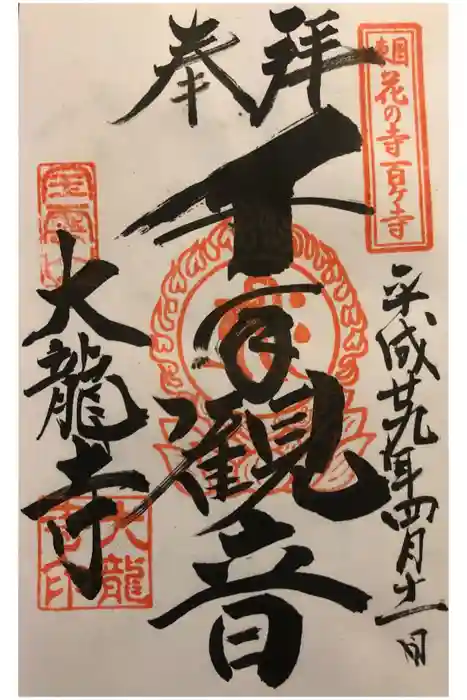 東国花の寺百ヶ寺
奉拝
平成廿九年四月十一日
千手觀音
大龍寺
大龍寺印